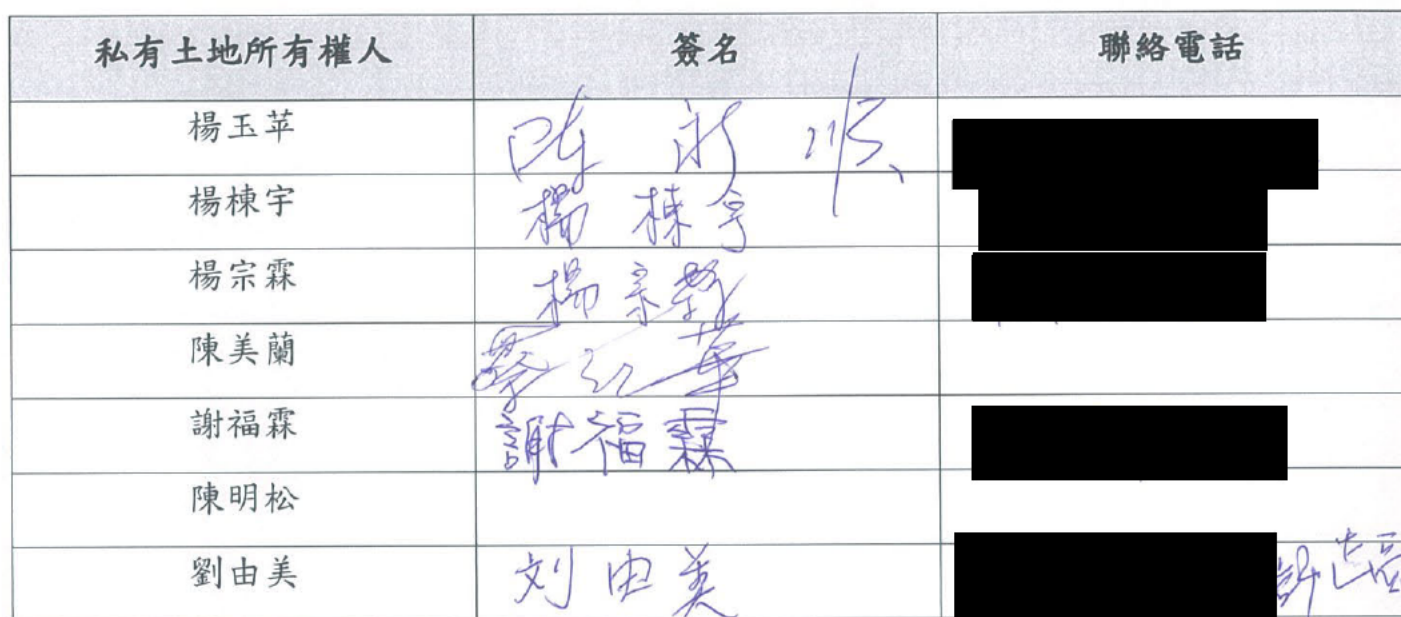 私有土地所有權人 簽名 聯絡電話
楊玉苹
楊棟宇 楊棟宇
楊宗霖 楊宗霖
陳美蘭
謝福霖 謝福霖
陳明松
劉由美 刘由美